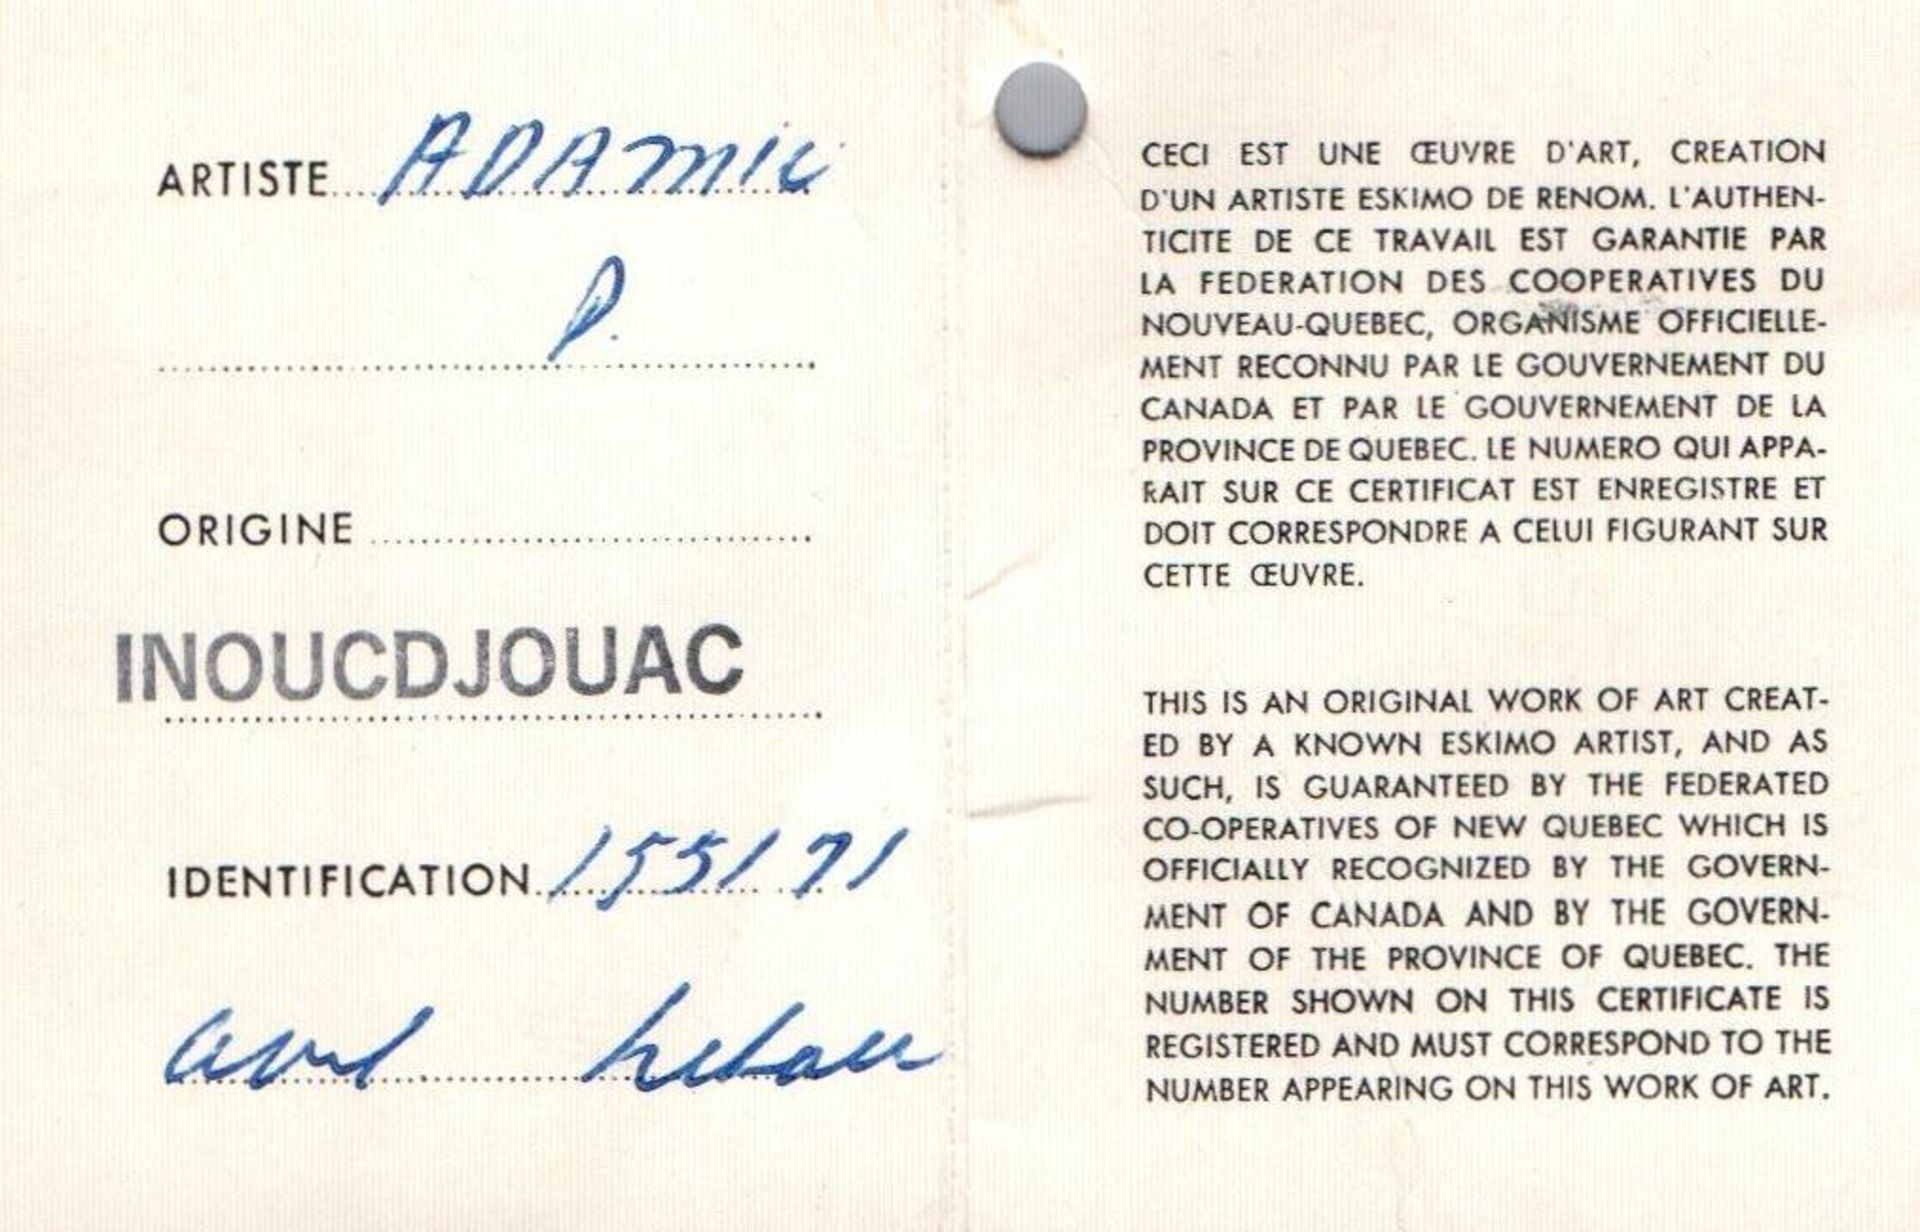 ARTISTE ADAMIE
P.
ORIGINE
INOUCDJOUAC
IDENTIFICATION 155171
CECI EST UNE ŒUVRE D'ART, CREATION
D'UN ARTISTE ESKIMO DE RENOM. L'AUTHEN-
TICITE DE CE TRAVAIL EST GARANTIE PAR
LA FEDERATION DES COOPERATIVES DU
NOUVEAU-QUEBEC, ORGANISME OFFICIELLE-
MENT RECONNU PAR LE GOUVERNEMENT DU
CANADA ET PAR LE GOUVERNEMENT DE LA
PROVINCE DE QUEBEC. LE NUMERO QUI APPA-
RAIT SUR CE CERTIFICAT EST ENREGISTRE ET
DOIT CORRESPONDRE A CELUI FIGURANT SUR
CETTE ŒUVRE.
THIS IS AN ORIGINAL WORK OF ART CREAT-
ED BY A KNOWN ESKIMO ARTIST, AND AS
SUCH, IS GUARANTEED BY THE FEDERATED
CO-OPERATIVES OF NEW QUEBEC WHICH IS
OFFICIALLY RECOGNIZED BY THE GOVERN-
MENT OF CANADA AND BY THE GOVERN-
MENT OF THE PROVINCE OF QUEBEC. THE
NUMBER SHOWN ON THIS CERTIFICATE IS
REGISTERED AND MUST CORRESPOND TO THE
NUMBER APPEARING ON THIS WORK OF ART.